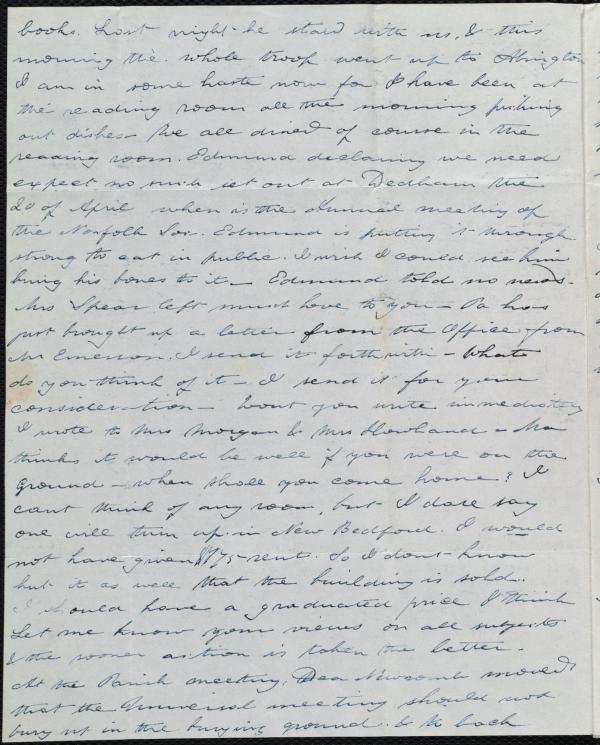 books. Last night he staid with us, & this
morning the whole troop went up to Abington
I am in some haste now for I have been at
the reading room all the morning fishing
out dishes - We all dined of course in the
reading room. Edmund declaring we need
expect no such set out at Dedham the
20 of April when is the Annual meeting of
the Norfolk Soc. Edmund is putting it through
strong to eat in public. I wish I could see him
bring his bones to it - Edmund told no news.
Mrs Spear left much love to you - Pa has
just brought up a letter from the Office from
Mr Emerson. I send it forthwith - Whats
do you think of it - I send it for your
consideration - Wont you write immediately
I wrote to Mrs Morgan & Mrs Howland - Ma
thinks it would be well if you were on the
ground - when shall you come home? I
cant think of any room, but I dare say
one will turn up in New Bedford. I would
not have given $175 rent. So I dont know
but it as well that the building is sold.
I should have a graduated price I think
Let me know your views on all subjects
& the sooner action is taken the better.
At the Parish meeting, Dea Newcomb moved
that the Universal meeting should not
bury us in the burying ground. & to back